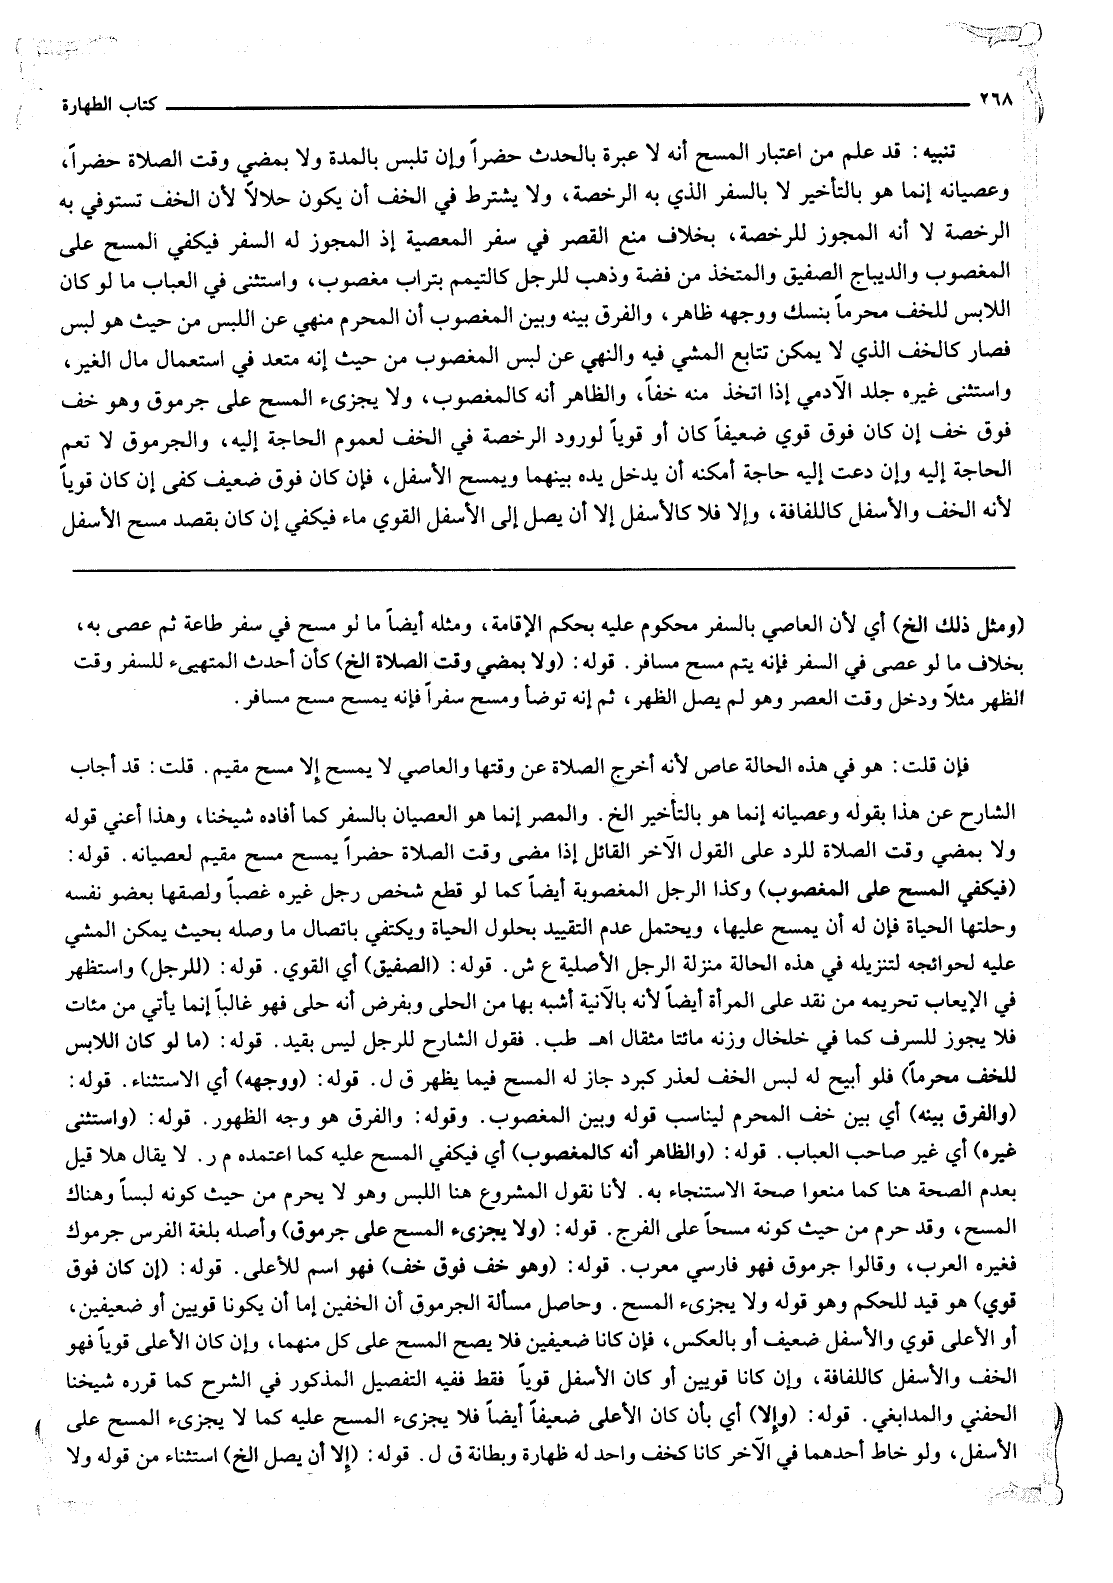 ٢٦٨ كتاب الطهارة
تنبيه: قد علم من اعتبار المسح أنه لا عبرة بالحدث حضراً وإن تلبس بالمدة ولا بمضي وقت الصلاة حضراً،
وعصيانه إنما هو بالتأخير لا بالسفر الذي به الرخصة، ولا يشترط في الخف أن يكون حلالاً لأن الخف تستوفي به
الرخصة لا أنه المجوز للرخصة، بخلاف منع القصر في سفر المعصية إذ المجوز له السفر فيكفي المسح على
المغصوب والديباج الصفيق والمتخذ من فضة وذهب للرجل كالتيمم بتراب مغصوب، واستثنى في العباب ما لو كان
اللابس للخف محرماً بنسك ووجهه ظاهر، والفرق بينه وبين المغصوب أن المحرم منهي عن اللبس من حيث هو لبس
فصار كالخف الذي لا يمكن تتابع المشي فيه والنهي عن لبس المغصوب من حيث إنه متعد في استعمال مال الغير،
واستثنى غيره جلد الآدمي إذا اتخذ منه خفاً، والظاهر أنه كالمغصوب، ولا يجزىء المسح على جرموق وهو خف
فوق خف إن كان فوق قوي ضعيفاً كان أو قوياً لورود الرخصة في الخف لعموم الحاجة إليه، والجرموق لا تعم
الحاجة إليه وإن دعت إليه حاجة أمكنه أن يدخل يده بينهما ويمسح الأسفل، فإن كان فوق ضعيف كفى إن كان قوياً
لأنه الخف والأسفل كاللفافة، وإلا فلا كالأسفل إلا أن يصل إلى الأسفل القوي ماء فيكفي إن كان بقصد مسح الأسفل
(ومثل ذلك الخ) أي لأن العاصي بالسفر محكوم عليه بحكم الإقامة، ومثله أيضاً ما لو مسح في سفر طاعة ثم عصى به،
بخلاف ما لو عصى في السفر فإنه يتم مسح مسافر. قوله: (ولا بمضي وقت الصلاة الخ) كأن أحدث المتهيىء للسفر وقت
الظهر مثلاً ودخل وقت العصر وهو لم يصل الظهر، ثم إنه توضأ ومسح سفراً فإنه يمسح مسح مسافر.
فإن قلت: هو في هذه الحالة عاص لأنه أخرج الصلاة عن وقتها والعاصي لا يمسح إلا مسح مقيم. قلت: قد أجاب
الشارح عن هذا بقوله وعصيانه إنما هو بالتأخير الخ. والمصر إنما هو العصيان بالسفر كما أفاده شيخنا، وهذا أعني قوله
ولا بمضي وقت الصلاة للرد على القول الآخر القائل إذا مضى وقت الصلاة حضراً يمسح مسح مقيم لعصيانه. قوله:
(فيكفي المسح على المغصوب) وكذا الرجل المغصوبة أيضاً كما لو قطع شخص رجل غيره غصباً ولصقها بعضو نفسه
وحلتها الحياة فإن له أن يمسح عليها، ويحتمل عدم التقييد بحلول الحياة ويكتفي باتصال ما وصله بحيث يمكن المشي
عليه لحوائجه لتنزيله في هذه الحالة منزلة الرجل الأصلية ع ش. قوله: (الصفيق) أي القوي. قوله: (للرجل) واستظهر
في الإيعاب تحريمه من نقد على المرأة أيضاً لأنه بالآنية أشبه بها من الحلى وبفرض أنه حلى فهو غالباً إنما يأتي من مئات
فلا يجوز للسرف كما في خلخال وزنه مائتا مثقال اهـ طب. فقول الشارح للرجل ليس بقيد. قوله: (ما لو كان اللابس
للخف محرماً) فلو أبيح له لبس الخف لعذر كبرد جاز له المسح فيما يظهر ق ل. قوله: (ووجهه) أي الاستثناء. قوله:
(والفرق بينه) أي بين خف المحرم ليناسب قوله وبين المغصوب. وقوله: والفرق هو وجه الظهور. قوله: (واستثنى
غيره) أي غير صاحب العباب. قوله: (والظاهر أنه كالمغصوب) أي فيكفي المسح عليه كما اعتمده م ر. لا يقال هلا قيل
بعدم الصحة هنا كما منعوا صحة الاستنجاء به. لأنا نقول المشروع هنا اللبس وهو لا يحرم من حيث كونه لبساً وهناك
المسح، وقد حرم من حيث كونه مسحاً على الفرج. قوله: (ولا يجزىء المسح على جرموق) وأصله بلغة الفرس جرموك
فغيره العرب، وقالوا جرموق فهو فارسي معرب. قوله: (وهو خف فوق خف) فهو اسم للأعلى. قوله: (إن كان فوق
قوي) هو قيد للحكم وهو قوله ولا يجزىء المسح. وحاصل مسألة الجرموق أن الخفين إما أن يكونا قويين أو ضعيفين،
أو الأعلى قوي والأسفل ضعيف أو بالعكس، فإن كانا ضعيفين فلا يصح المسح على كل منهما، وإن كان الأعلى قوياً فهو
الخف والأسفل كاللفافة، وإن كانا قويين أو كان الأسفل قوياً فقط ففيه التفصيل المذكور في الشرح كما قرره شيخنا
الحفني والمدابغي. قوله: (وإلا) أي بأن كان الأعلى ضعيفاً أيضاً فلا يجزىء المسح عليه كما لا يجزىء المسح على
الأسفل، ولو خاط أحدهما في الآخر كانا كخف واحد له ظهارة وبطانة ق ل. قوله: (إلا أن يصل الخ) استثناء من قوله ولا